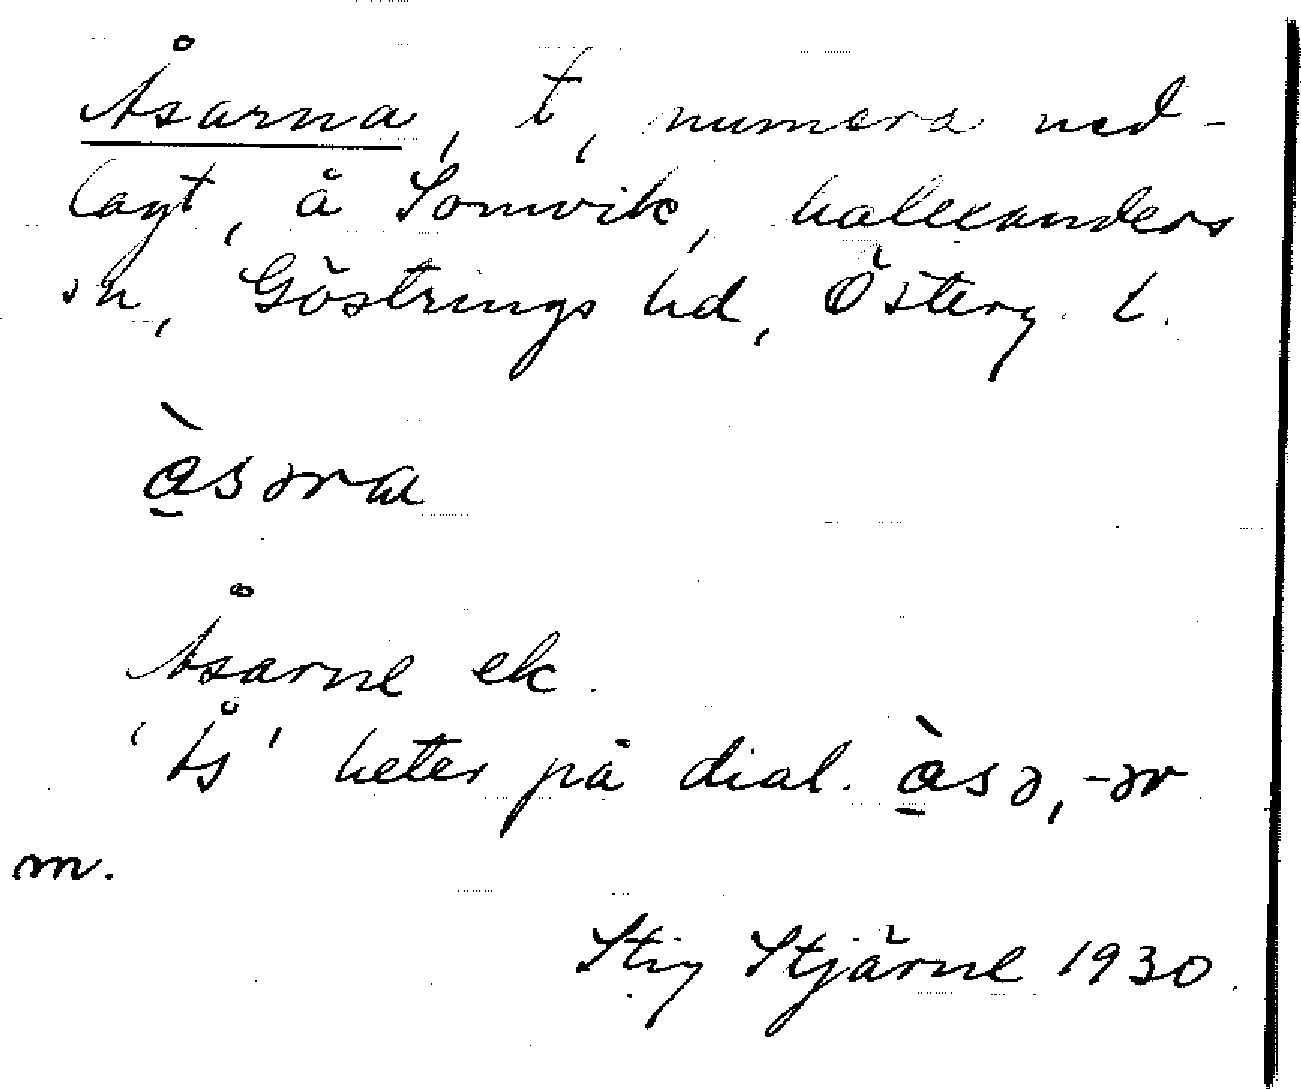 Åsarna, t, numera ned-
lagt, å Somvik, Malexanders
sn, Göstrings hd, Österg. l.
å̱̀səra
Åsarne ek.
'Ås' heter på dial. å̱̀sə, -ər
m.
Stig Stjärne 1930.